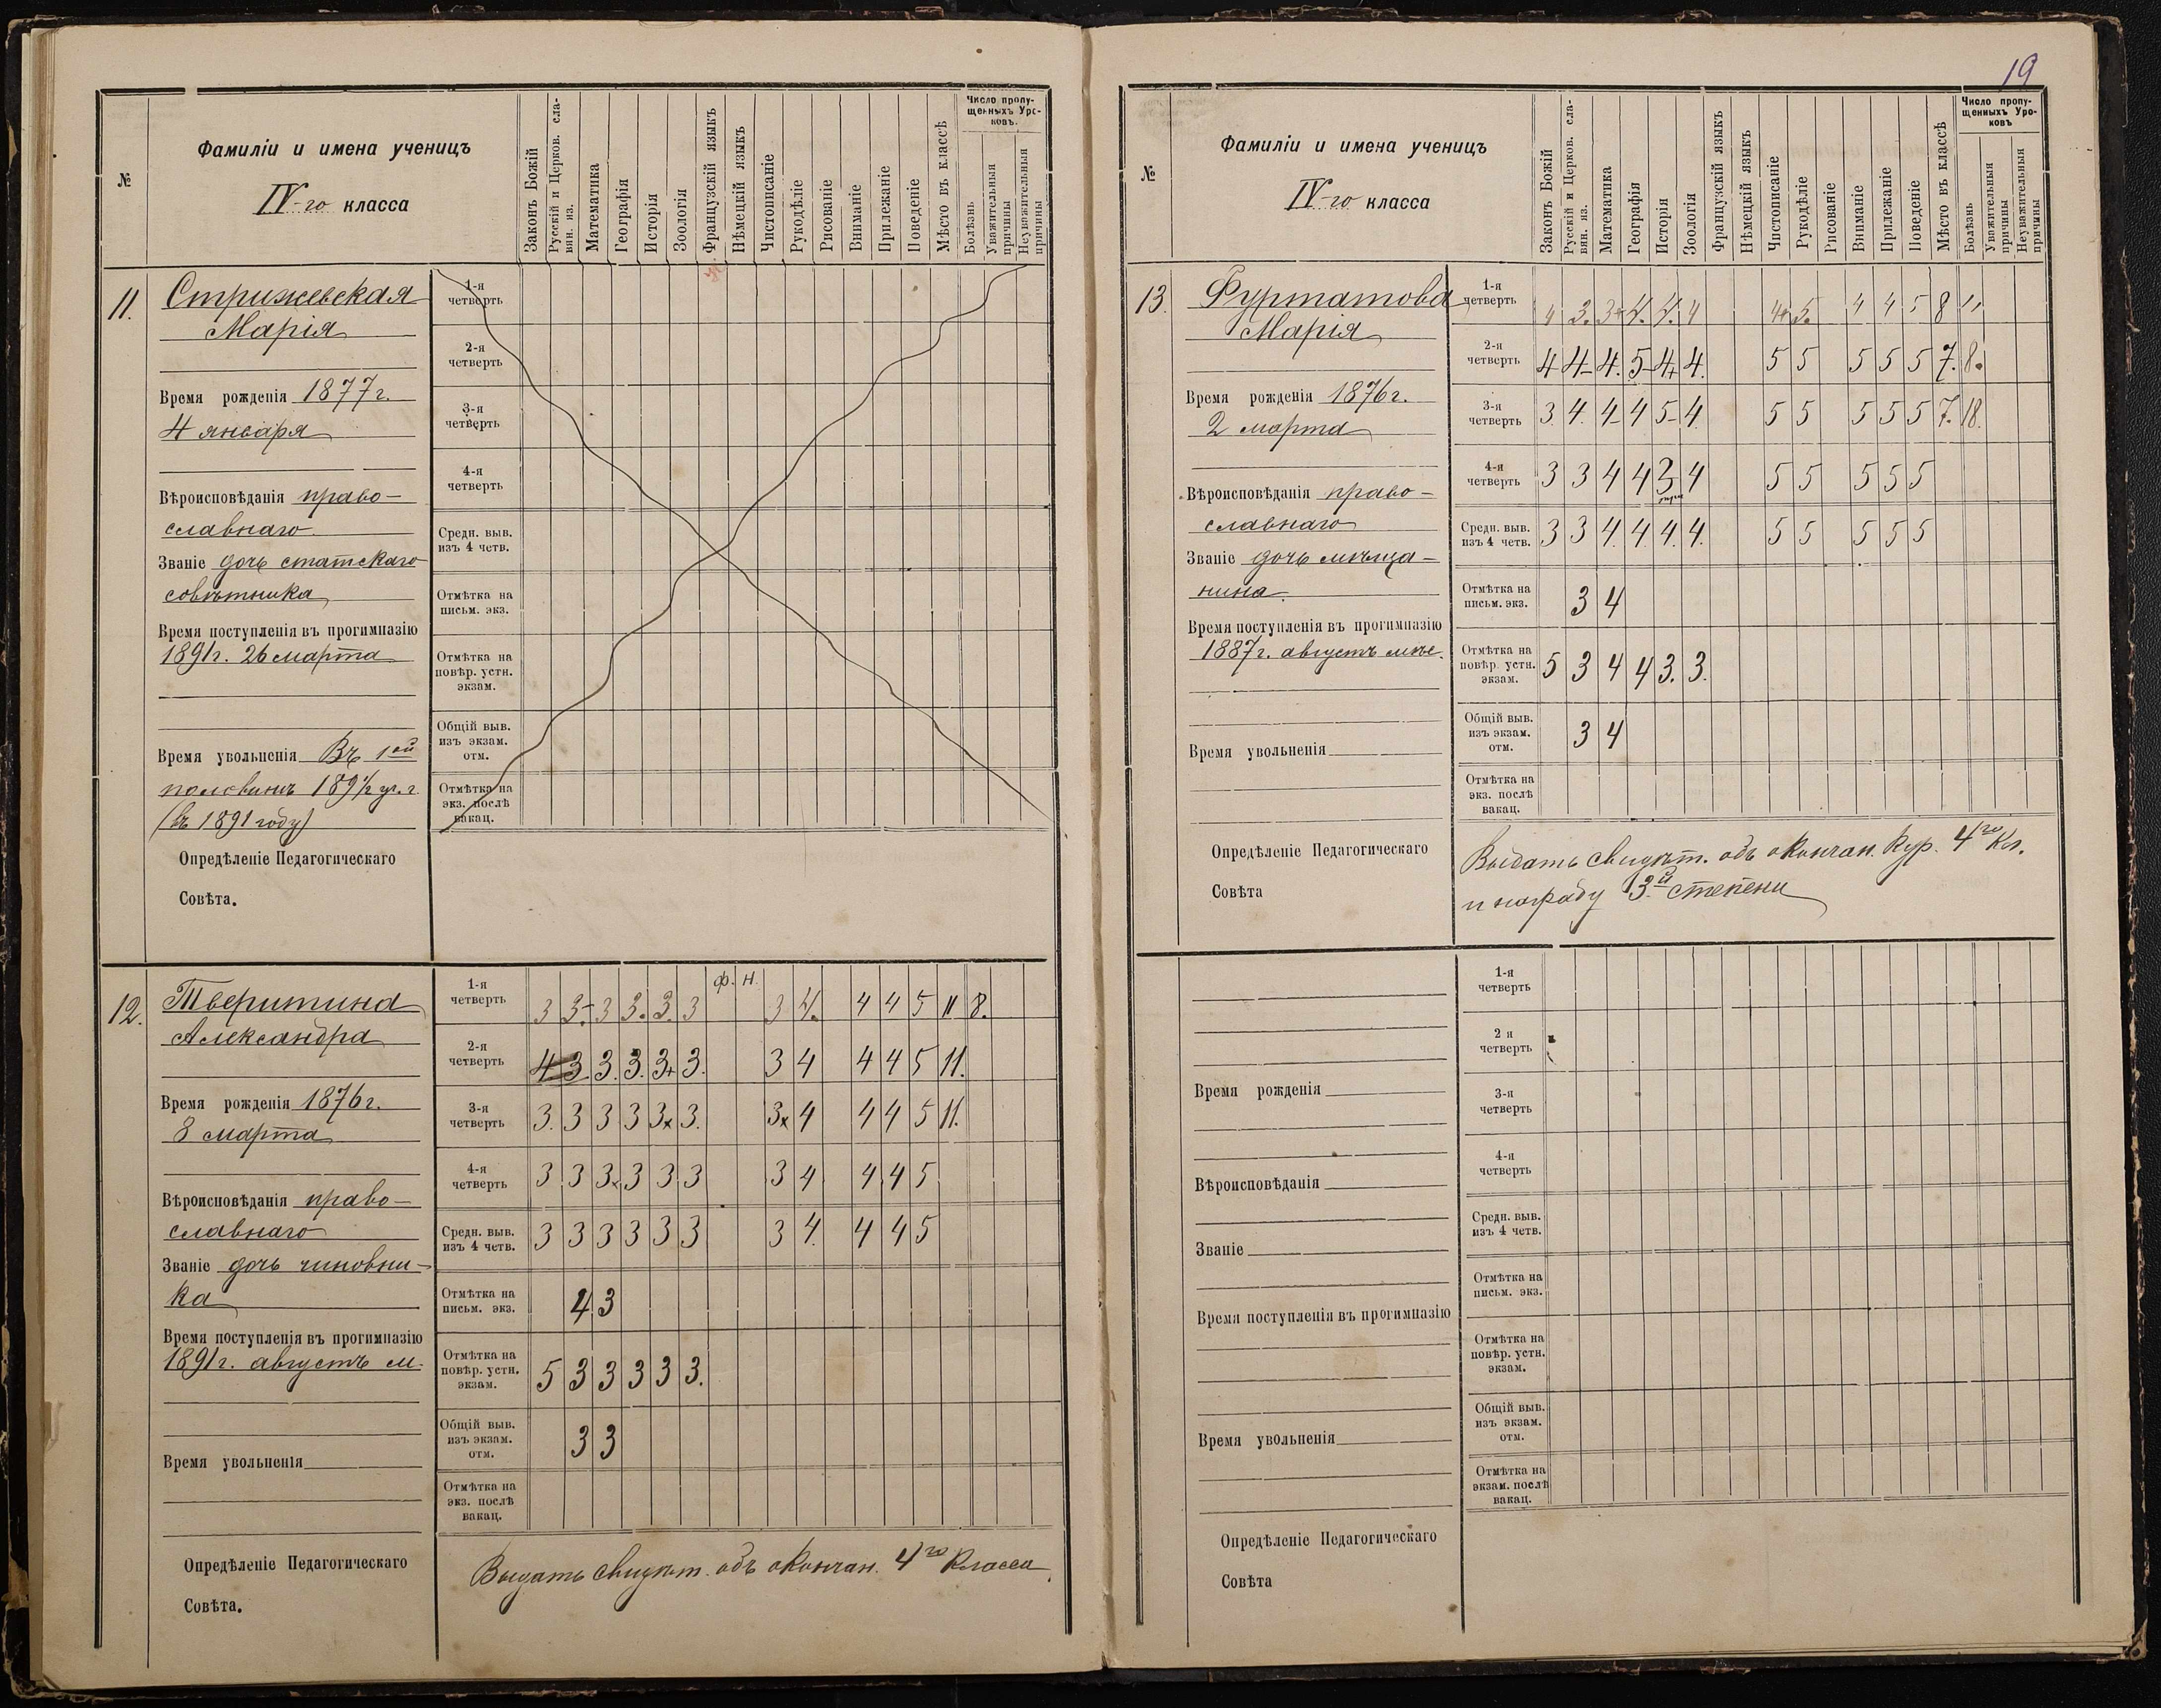 №
Фамиліи и имена ученицъ
IV-го класса
Законъ Божій
Русскій и Церков. сла-
вян. яз.
Математика
Географія
Исторія
Зоологія
Французскій языкъ
Нѣмецкій языкъ
Чистописаніе
Рукодѣліе
Рисованіе
Вниманіе
Прилежаніе
Поведеніе
Мѣсто въ классѣ
Число пропу-
щенныхъ Уро-
ковъ.
Болѣзнь
Уважительныя
причины
Неуважительныя
причины
11.
Стрижевская
Марія
Время рожденія 1877 г.
4 января
Вѣроисповѣданія право-
славнаго
Званіе дочь статскаго
совѣтника
Время поступленія въ прогимназію
1891 г. 26 марта
Время увольненія Въ 1ой
половинѣ 1891/2 уч. г.
(въ 1891 году)
Опредѣленіе Педагогическаго
Совѣта.
1-я
четверть
2-я
четверть
3-я
четверть
4-я
четверть
Средн. выв.
изъ 4 четв.
Отмѣтка на
письм. экз.
Отмѣтка на
повѣр. устн.
экзам.
Общій выв.
изъ экзам.
отм.
Отмѣтка на
экз. послѣ
вакац.
12.
Тверитина
Александра
Время рожденія 1876 г.
8 марта
Вѣроисповѣданія право-
славнаго
Званіе дочь чиновни-
ка
Время поступленія въ прогимназію
1891 г. августъ м.
Время увольненія
Опредѣленіе Педагогическаго
Совѣта.
ф. н.
1-я
четверть 3 3- 3 3. 3. 3 3 4. 4 4 5 11 8.
2-я
четверть 4 3 3. 3. 3+ 3. 3 4 4 4 5 11.
3-я
четверть 3. 3 3 3 3x 3. 3x 4 4 4 5 11.
4-я
четверть 3 3 3x 3 3 3 3 4 4 4 5
Средн. выв.
изъ 4 четв. 3 3 3 3 3 3 3 4. 4 4 5
Отмѣтка на
письм. экз. 4 3
Отмѣтка на
повѣр. устн.
экзам. 5 3 3 3 3 3.
Общій выв.
изъ экзам.
отм. 3 3
Отмѣтка на
экз. послѣ
вакац.
Выдать свидѣт. объ окончан. 4го класса.
19
№
Фамиліи и имена ученицъ
IV-го класса
Законъ Божій
Русскій и Церков. сла-
вян. яз.
Математика
Географія
Исторія
Зоологія
Французскій языкъ
Нѣмецкій языкъ
Чистописаніе
Рукодѣліе
Рисованіе
Вниманіе
Прилежаніе
Поведеніе
Мѣсто въ классѣ
Число пропу-
щенныхъ Уро-
ковъ
Болѣзнь
Уважительныя
причины
Неуважительныя
причины
13.
Фуртатова
Марія
Время рожденія 1876 г.
2 марта
Вѣроисповѣданія право-
славнаго
Званіе дочь мѣща-
нина.
Время поступленія въ прогимназію
1887 г. августъ мѣс.
Время увольненія
Опредѣленіе Педагогическаго
Совѣта
1-я
четверть 4 3. 3+ 4. 4. 4 4+ 5. 4 4 5 8 11
2-я
четверть 4 4- 4. 5- 4+ 4. 5 5 5 5 5 7. 8.
3-я
четверть 3. 4. 4- 4 5- 4. 5 5 5 5 5 7. 18.
4-я
четверть 3 3 4 4 3 4 5 5 5 5 5
Средн. выв.
изъ 4 четв. 3 3 4. 4. 4. 4. 5 5 5 5 5
Отмѣтка на
письм. экз. 3 4
Отмѣтка на
повѣр. устн.
экзам. 5 3 4 4 3. 3.
Общій выв.
изъ экзам.
отм. 3 4
Отмѣтка на
экз. послѣ
вакац.
Выдать свидѣт. объ окончан. кур. 4го кл.
и награду 3й степени
Время рожденія
Вѣроисповѣданія
Званіе
Время поступленія въ прогимназію
Время увольненія
Опредѣленіе Педагогическаго
Совѣта
1-я
четверть
2 я
четверть
3-я
четверть
4-я
четверть
Средн. выв.
изъ 4 четв.
Отмѣтка на
письм. экз.
Отмѣтка на
повѣр. устн.
экзам.
Общій выв.
изъ экзам.
отм.
Отмѣтка на
экзам. послѣ
вакац.